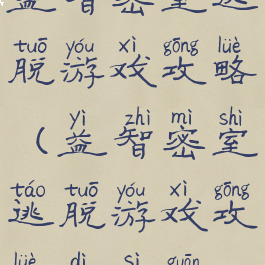 tuō yóu xì gōng lüè
脱游戏攻略
yì zhì mì shì
（益智密室
táo tuō yóu xì gōng
逃脱游戏攻
lüè dì sì guān